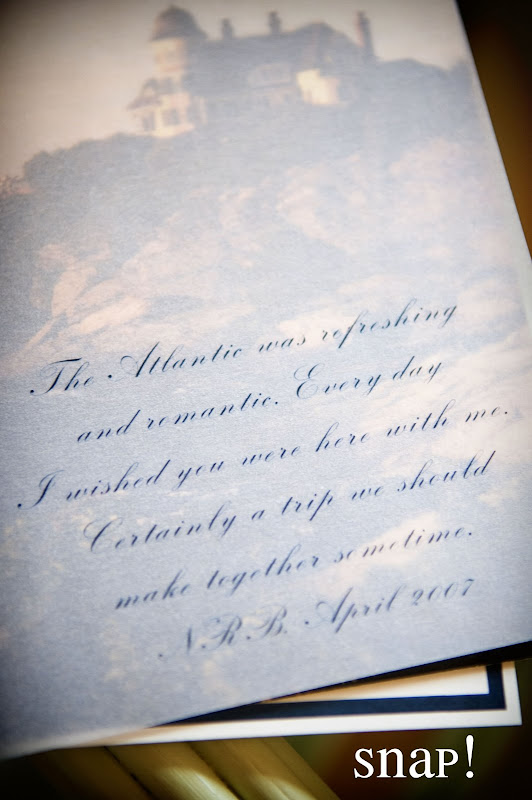 The Atlantic was refreshing
and romantic. Every day
I wished you were here with me.
Certainly a trip we should
make together sometime.
N.R.B. April 2007
snap!